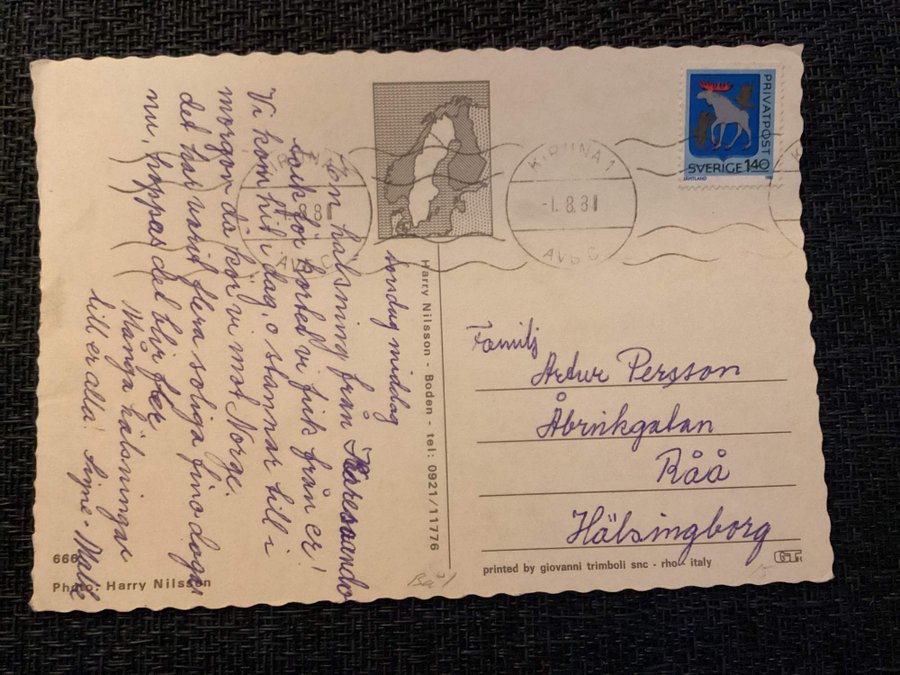 midag
En hälsning från Karesuando
tack för kortet vi fick från er!
Vi kom hit i dag, o stannar till i
morgon då kör vi mot Norge.
det har varit flera soliga fina dagar
nu, hoppas det blir fler
Många hälsningar
till er alla! Signe-
666
Photo: Harry Nilsson
Harry Nilsson - Boden - tel: 0921/11776
PRIVATPOST
SVERIGE 140
JÄMTLAND
KIRUNA 1
-1. 8. 81
AVG C
Familj
Artur Persson
Åbrinkgatan
Råå
Hälsingborg
printed by giovanni trimboli snc - rho - italy